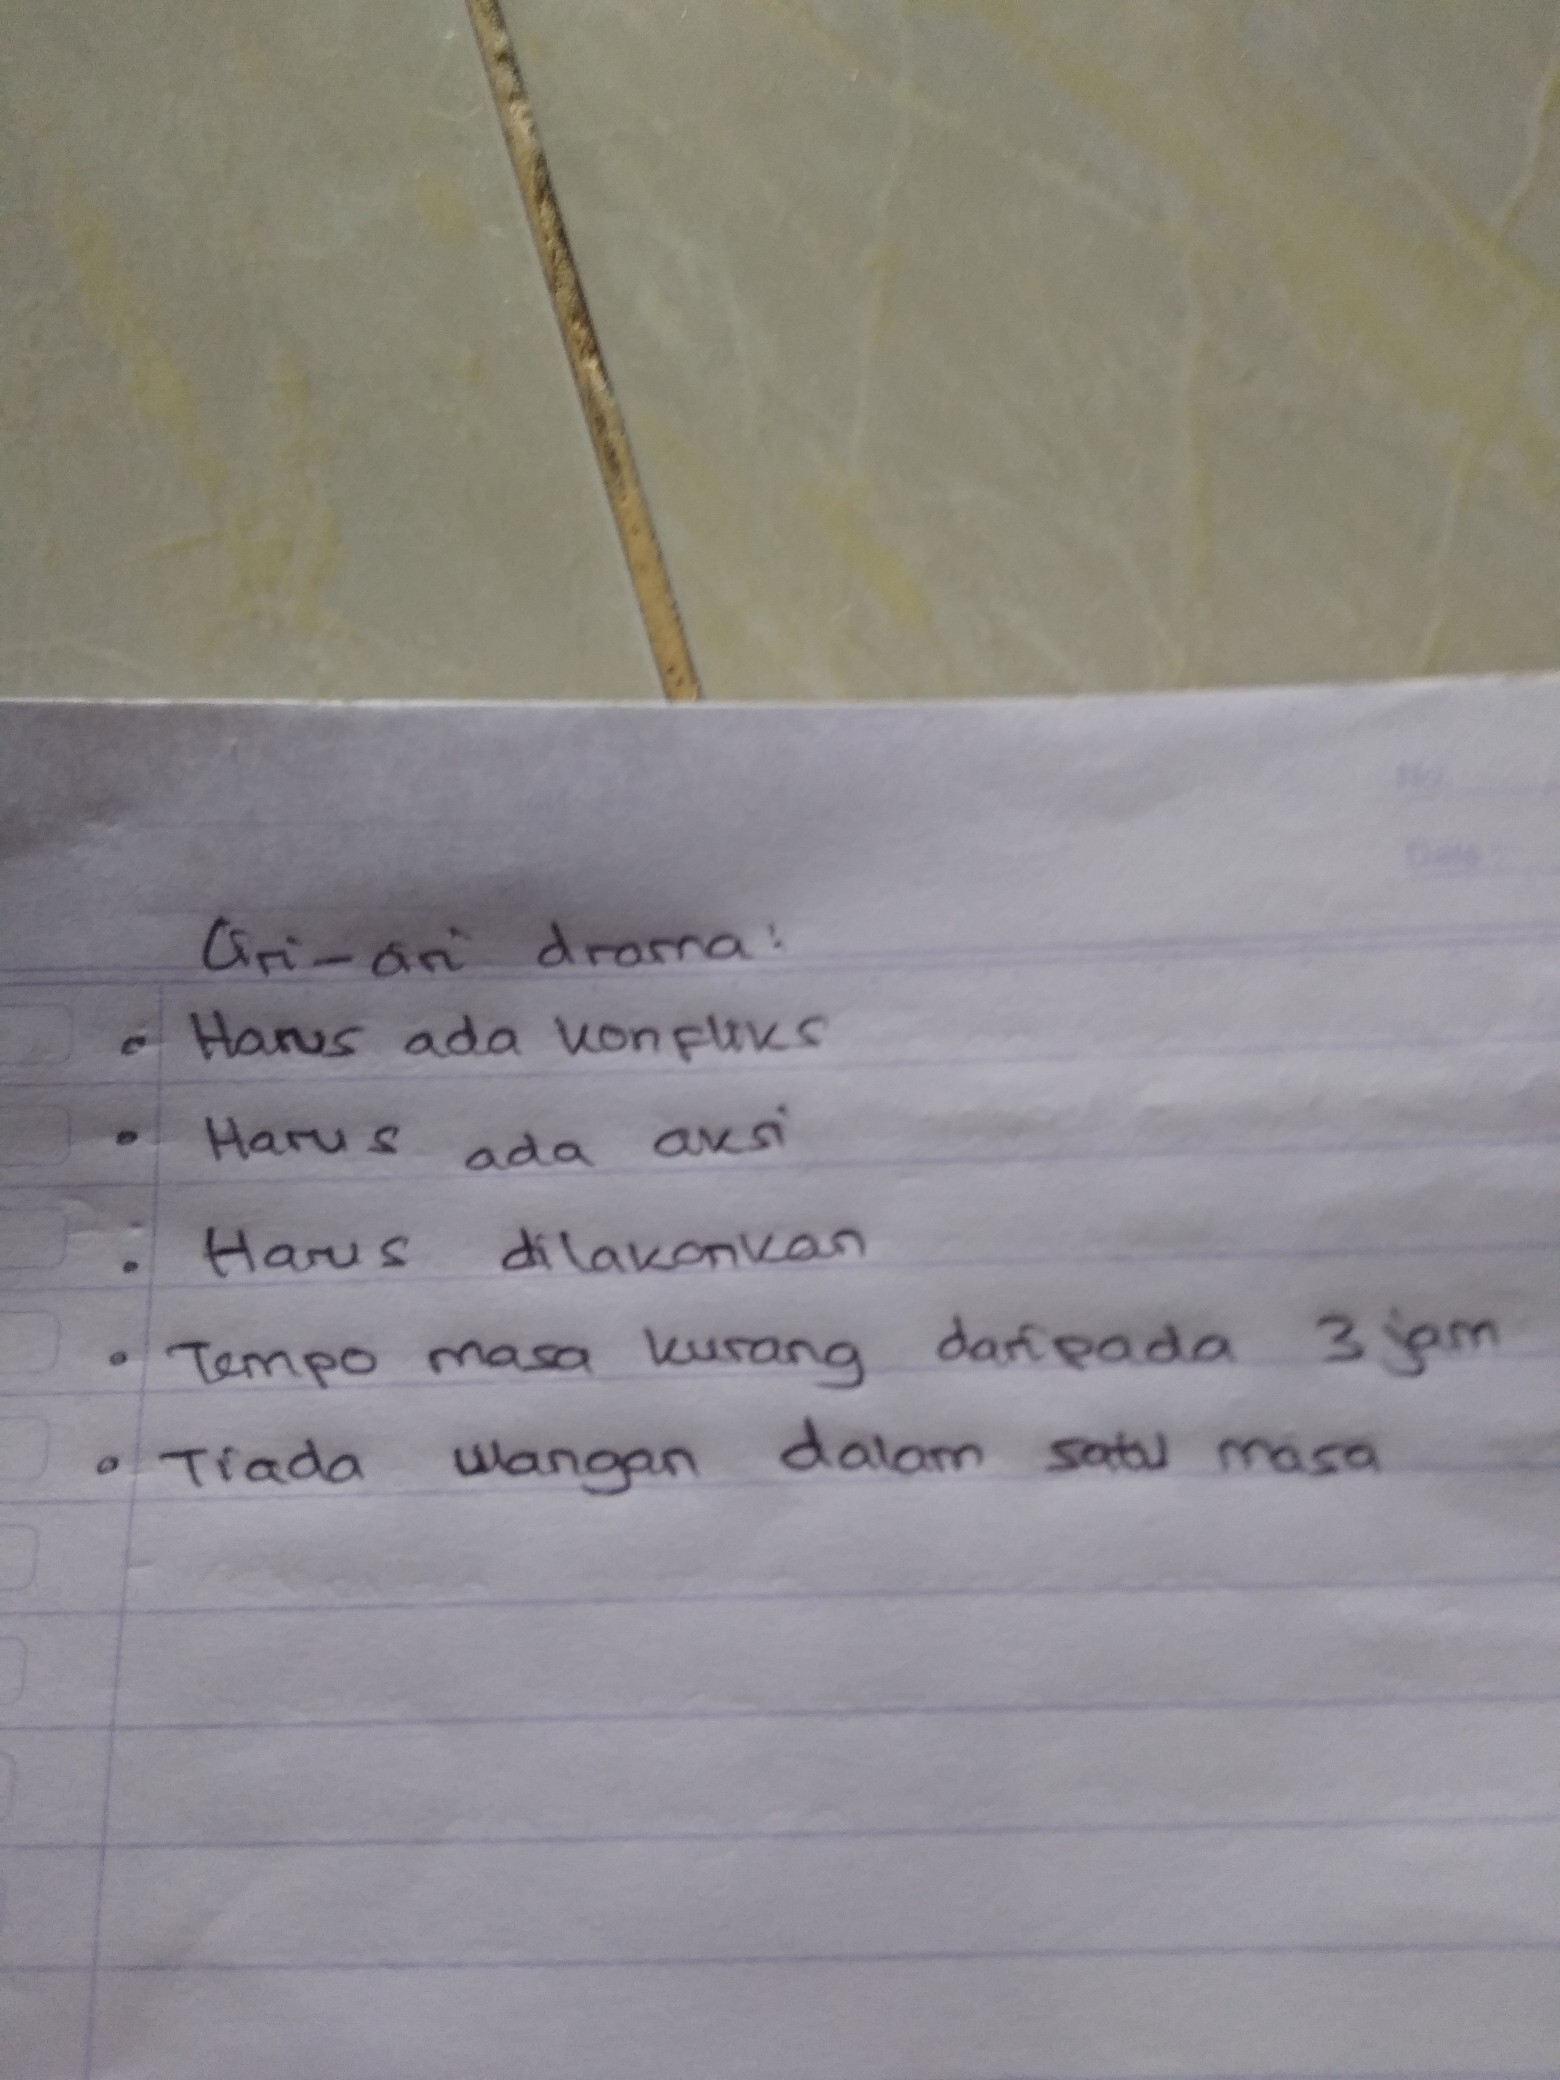 No.
Date:
Ciri-ciri drama:
• Harus ada konfliks
• Harus ada aksi
• Harus dilakonkan
• Tempo masa kurang daripada 3 jam
• Tiada ulangan dalam satu masa